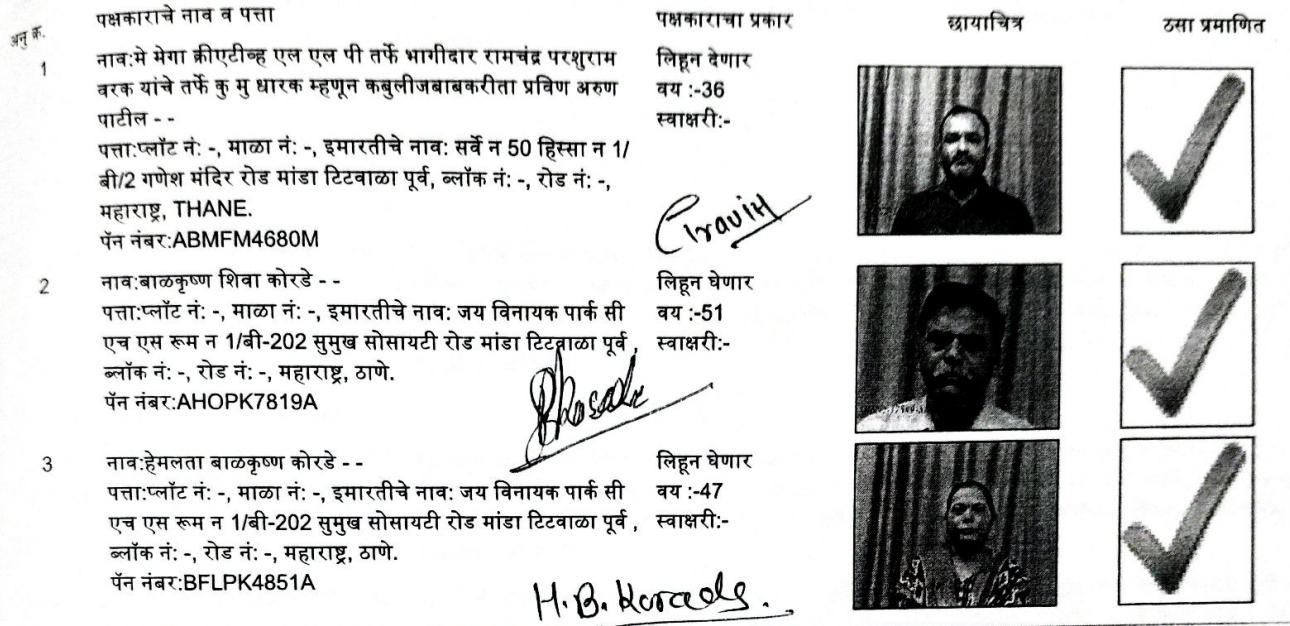 अनु क्र.
पक्षकाराचे नाव व पत्ता
पक्षकाराचा प्रकार
छायाचित्र
ठसा प्रमाणित
1
नाव:मे मेगा क्रीएटीव्ह एल एल पी तर्फे भागीदार रामचंद्र परशुराम
वरक यांचे तर्फे कु मु धारक म्हणून कबुलीजबाबकरीता प्रविण अरुण
पाटील - -
पत्ता:प्लॉट नं: -, माळा नं: -, इमारतीचे नाव: सर्वे न 50 हिस्सा न 1/
बी/2 गणेश मंदिर रोड मांडा टिटवाळा पूर्व, ब्लॉक नं: -, रोड नं: -,
महाराष्ट्र, THANE.
पॅन नंबर:ABMFM4680M
लिहून देणार
वय :-36
स्वाक्षरी:-
Pravin
2
नाव:बाळकृष्ण शिवा कोरडे - -
पत्ता:प्लॉट नं: -, माळा नं: -, इमारतीचे नाव: जय विनायक पार्क सी
एच एस रूम न 1/बी-202 सुमुख सोसायटी रोड मांडा टिटवाळा पूर्व ,
ब्लॉक नं: -, रोड नं: -, महाराष्ट्र, ठाणे.
पॅन नंबर:AHOPK7819A
लिहून घेणार
वय :-51
स्वाक्षरी:-
3
नाव:हेमलता बाळकृष्ण कोरडे - -
पत्ता:प्लॉट नं: -, माळा नं: -, इमारतीचे नाव: जय विनायक पार्क सी
एच एस रूम न 1/बी-202 सुमुख सोसायटी रोड मांडा टिटवाळा पूर्व ,
ब्लॉक नं: -, रोड नं: -, महाराष्ट्र, ठाणे.
पॅन नंबर:BFLPK4851A
लिहून घेणार
वय :-47
स्वाक्षरी:-
H.B. Korade.